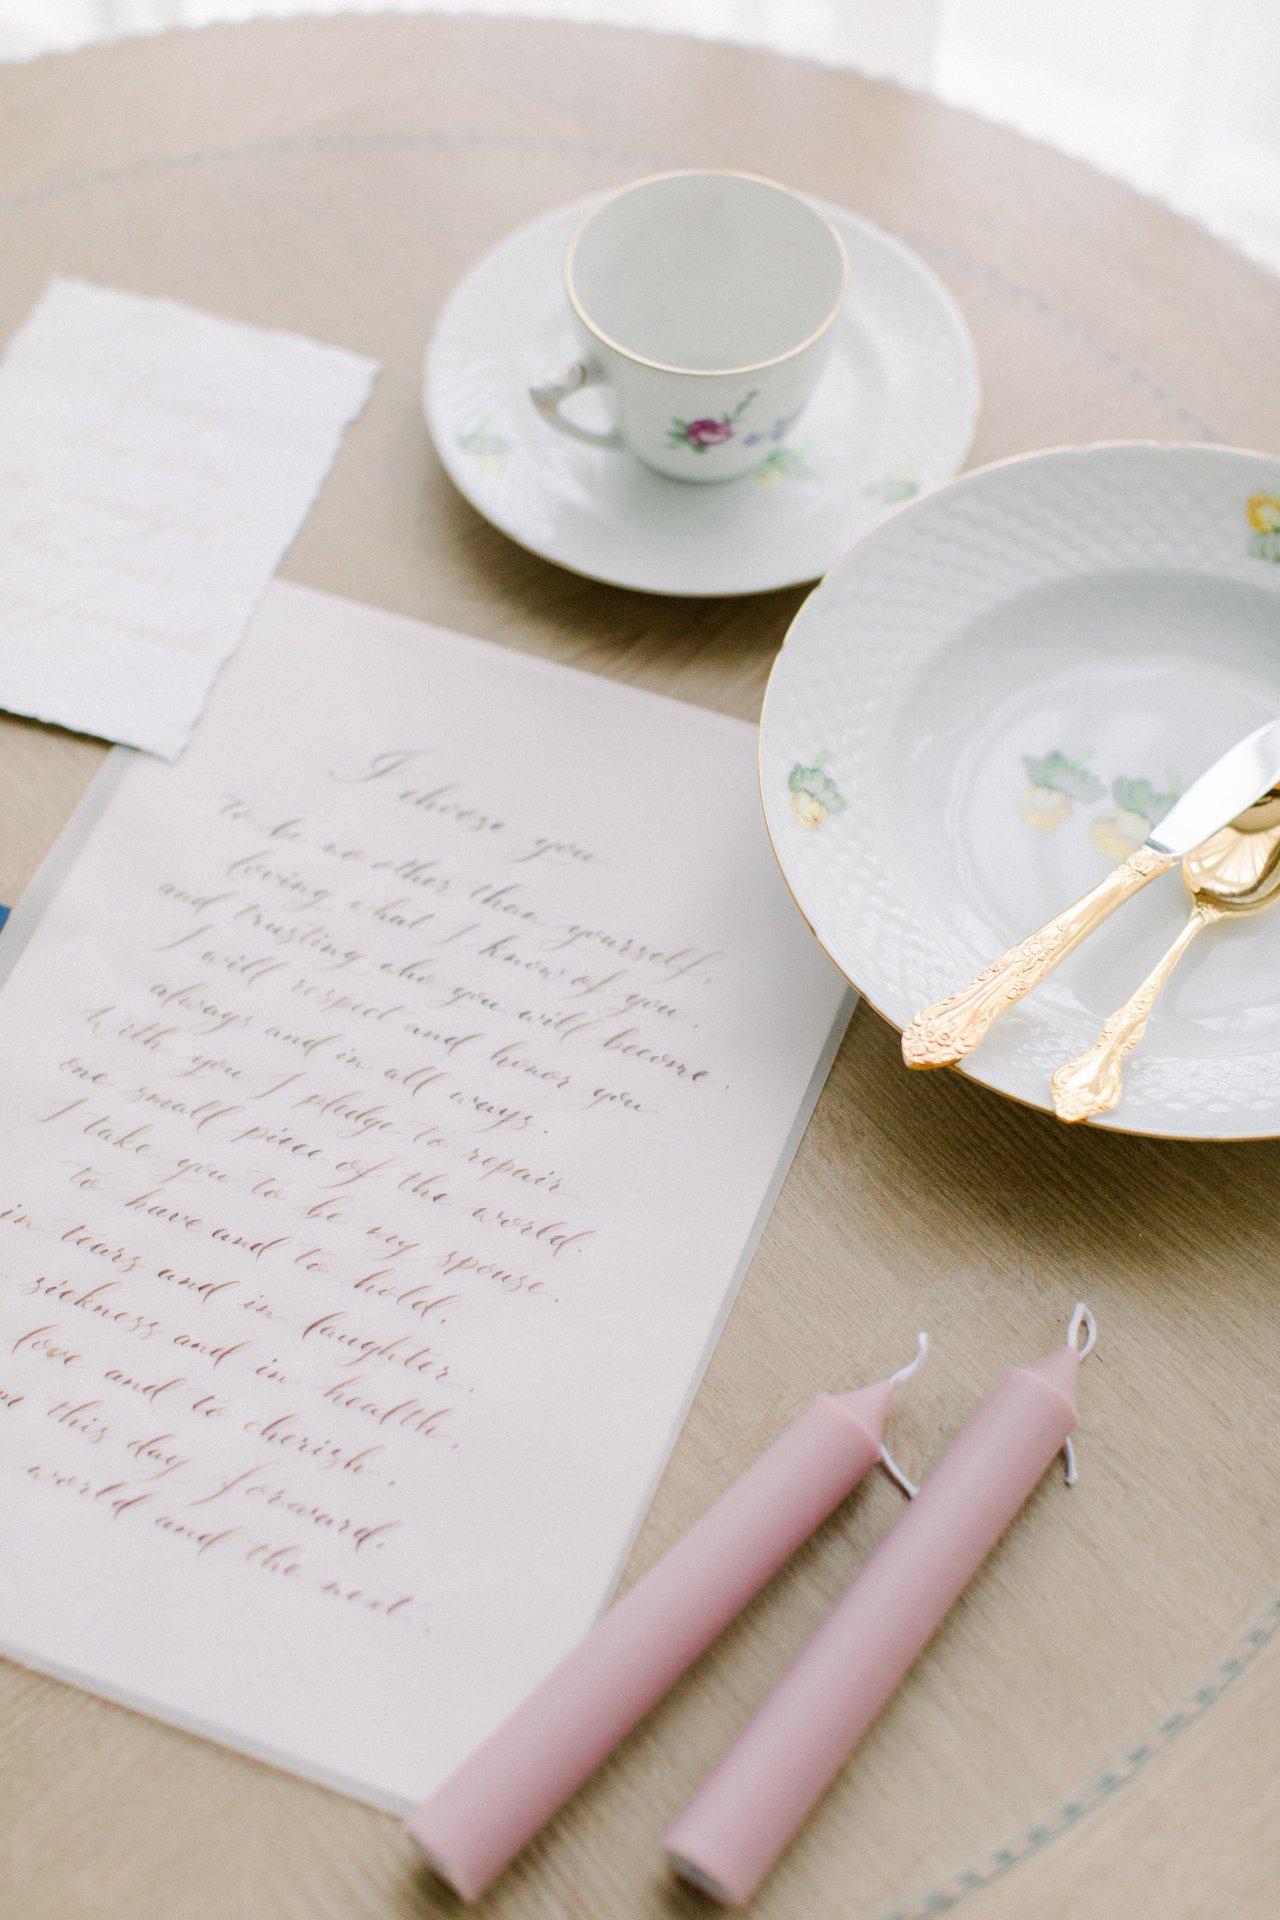 I choose you
To be no other than yourself,
loving what I know of you,
and trusting who you will become.
I will respect and honor you
always and in all ways.
With you I pledge to repair
one small piece of the world.
I take you to be my spouse.
to have and to hold,
in tears and in laughter,
sickness and in health,
love and to cherish,
this day forward,
world and the next.